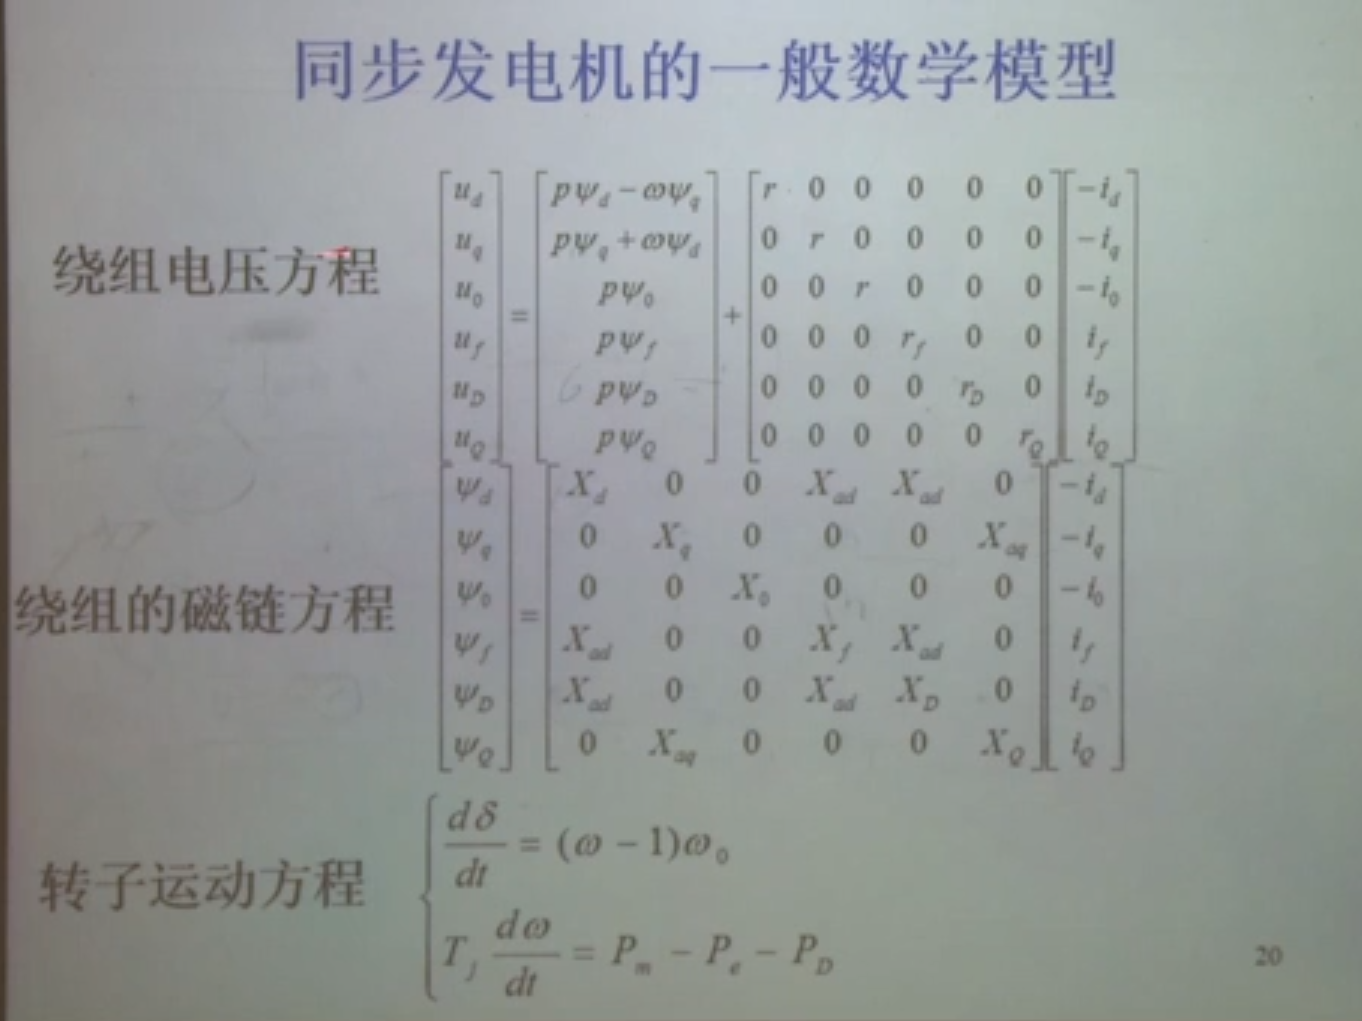 同步发电机的一般数学模型
绕组电压方程
[u_d; u_q; u_0; u_f; u_D; u_Q] = [pψ_d − ωψ_q; pψ_q + ωψ_d; pψ_0; pψ_f; pψ_D; pψ_Q] + [r 0 0 0 0 0; 0 r 0 0 0 0; 0 0 r 0 0 0; 0 0 0 r_f 0 0; 0 0 0 0 r_D 0; 0 0 0 0 0 r_Q] [−i_d; −i_q; −i_0; i_f; i_D; i_Q]
绕组的磁链方程
[ψ_d; ψ_q; ψ_0; ψ_f; ψ_D; ψ_Q] = [X_d 0 0 X_ad X_ad 0; 0 X_q 0 0 0 X_aq; 0 0 X_0 0 0 0; X_ad 0 0 X_f X_ad 0; X_ad 0 0 X_ad X_D 0; 0 X_aq 0 0 0 X_Q] [−i_d; −i_q; −i_0; i_f; i_D; i_Q]
转子运动方程
dδ/dt = (ω − 1)ω_0
T_J dω/dt = P_m − P_e − P_D
20